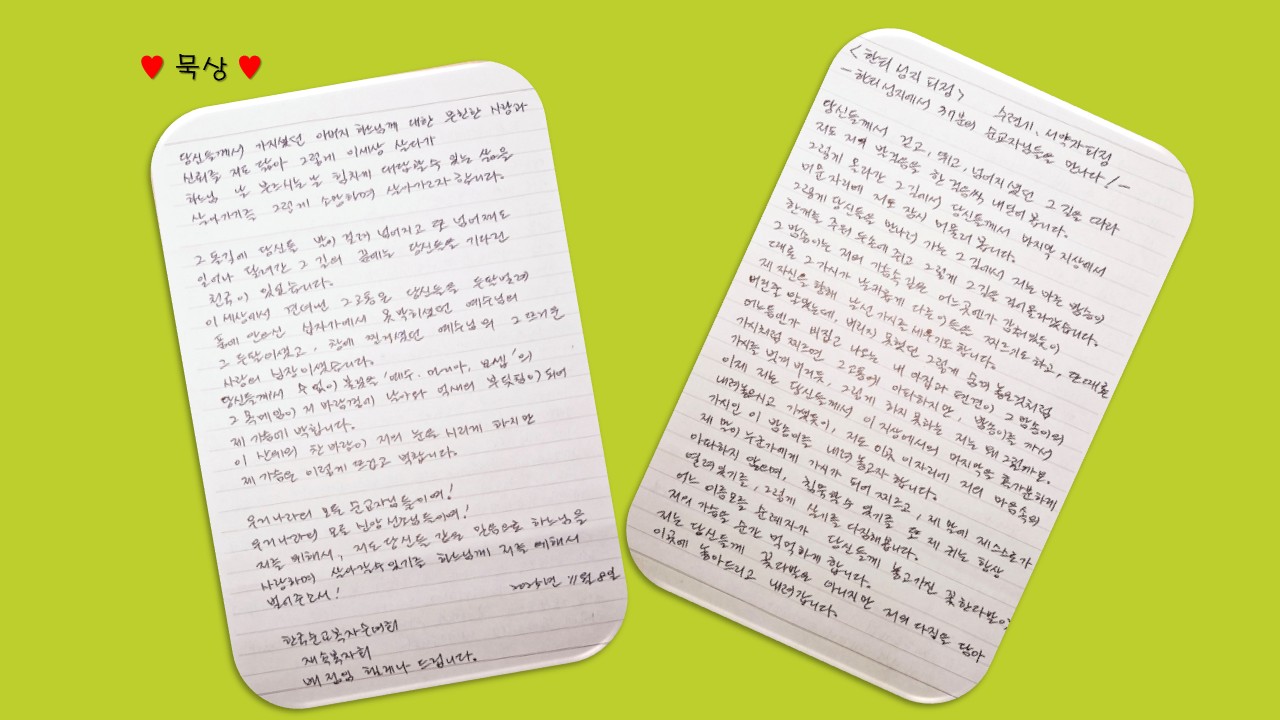 ♥ 묵상 ♥
<한티 성지 피정> 수련기, 서약자 피정
- 한티 성지에서 37분의 순교자님들을 만나다! -
당신들께서 걷고, 뛰고, 넘어지셨던 그 길을 따라
저도 저의 발걸음을 한 걸음씩 내딛어 봅니다.
그렇게 올라간 그 길에서 당신들께서 마지막 지상에서
머문 자리에 저도 잠시 머물러 봅니다.
그렇게 당신들을 만나러 가는 그 길에서 저는 마른 밤송이
한개를 주워 두손에 쥐고 그렇게 그 길을 걸어올라갔습니다.
그 밤송이는 저의 가슴속 깊은 어느곳엔가 감춰있듯이
때론 그 가시가 날카롭게 다른이들을 찌르기도 하고, 또 때론
제 자신을 향해 날선 가시를 세우기도 합니다.
버린줄 알았는데, 버리지 못했던 그렇게 숨겨 놓은것처럼
어느틈엔가 비집고 나오는 내 아집과 편견이 그 밤송이의
가시처럼 찌르면 그 고통에 아파하지만, 밤송이를 까서
가시를 벗겨 버리듯, 그렇게 하지 못하는 저는 왜 그런가요.
이제 저는 당신들께서 이 지상에서의 마지막을 홀가분하게
내려놓으시고 가셨듯이, 저도 이곳 이 자리에 저의 마음속의
가시인 이 밤송이를 내려 놓고자 합니다.
제 말이 누군가에게 가시가 되어 찌르고, 제 말에 제 스스로가
아파하지 않으며, 침묵할수 있기를 또 제 귀는 항상
열려있기를, 그렇게 살기를 다짐해봅니다.
어느 이름모를 순례자가 당신들께 놓고가진 꽃한다발이
저의 가슴을 순간 먹먹하게 합니다.
저는 당신들께 꽃다발은 아니지만 저의 다짐을 담아
이곳에 놓아드리고 내려갑니다.
당신들께서 가지셨던 아버지 하느님께 대한 온전한 사랑과
신뢰를 저도 닮아 그렇게 이세상 살다가
하느님 날 부르시는 날 힘차게 대답할수 있는 삶을
살아가기를 그렇게 소망하며 살아가고자 합니다.
그 목길에 당신들 발이 걸려 넘어지고 또 넘어져도
일어나 달려간 그 길의 끝에는 당신들을 기다린
천국이 있었습니다.
이 세상에서 견뎌낸 그 고통은 당신들을 두팔벌려
품에 안으신 십자가에서 못박히셨던 예수님의
그 두팔이셨고, 창에 찔리셨던 예수님의 그 뜨거운
사랑의 심장이셨습니다.
당신들께서 수 없이 불렀을 '예수. 마리아, 요셉'의
그 목메임이 저 바람결이 날아와 억새의 부딪힘이 되어
제 가슴에 박힙니다.
이 산에의 찬바람이 저의 눈을 시리게 하지만
제 가슴은 이렇게 뜨겁고 벅찹니다.
우리나라의 모든 순교자님들이여!
우리나라의 모든 신앙 선조님들이여!
저를 위해서, 저도 당신들 같은 믿음으로 하느님을
사랑하며 살아갈수있기를 하느님께 저를 위해서
빌어주소서!
2025년 11월 8일
한국순교복자수녀회
재속복자회
배 정영 헬레나 드립니다.